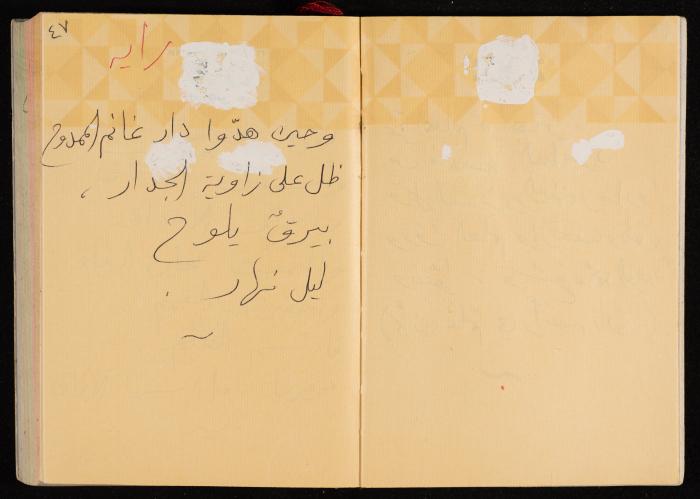 ٤٧
راية
وحين هدّوا دار غانم الممدوح
ظل على زاوية الجدار ،
بيرقٌ يلوح
ليل نهار .